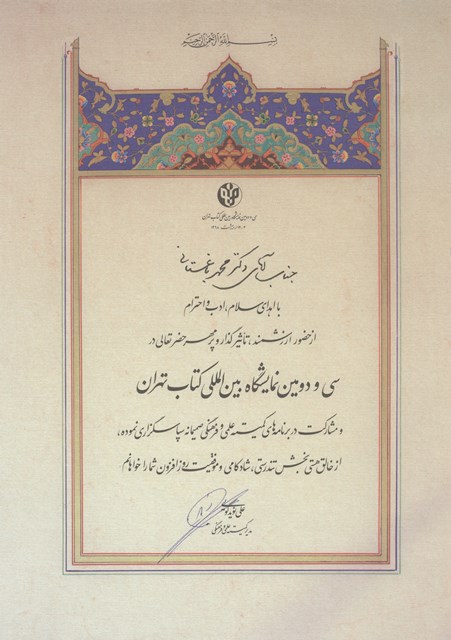 بسم الله الرحمن الرحیم
سی و دومین نمایشگاه بین‌المللی کتاب تهران
اردیبهشت ۱۳۹۸
جناب آقای دکتر محمد باغستانی
با اهدای سلام، ادب و احترام
از حضور ارزشمند، تأثیرگذار و پرمهر حضرتعالی در
سی و دومین نمایشگاه بین المللی کتاب تهران
و مشارکت در برنامه‌های کمیته علمی و فرهنگی صمیمانه سپاسگزاری نموده،
از خالق هستی‌بخش تندرستی، شادکامی و موفقیت روزافزون شما را خواهانم.
علی
مدیر کمیته علمی فرهنگی